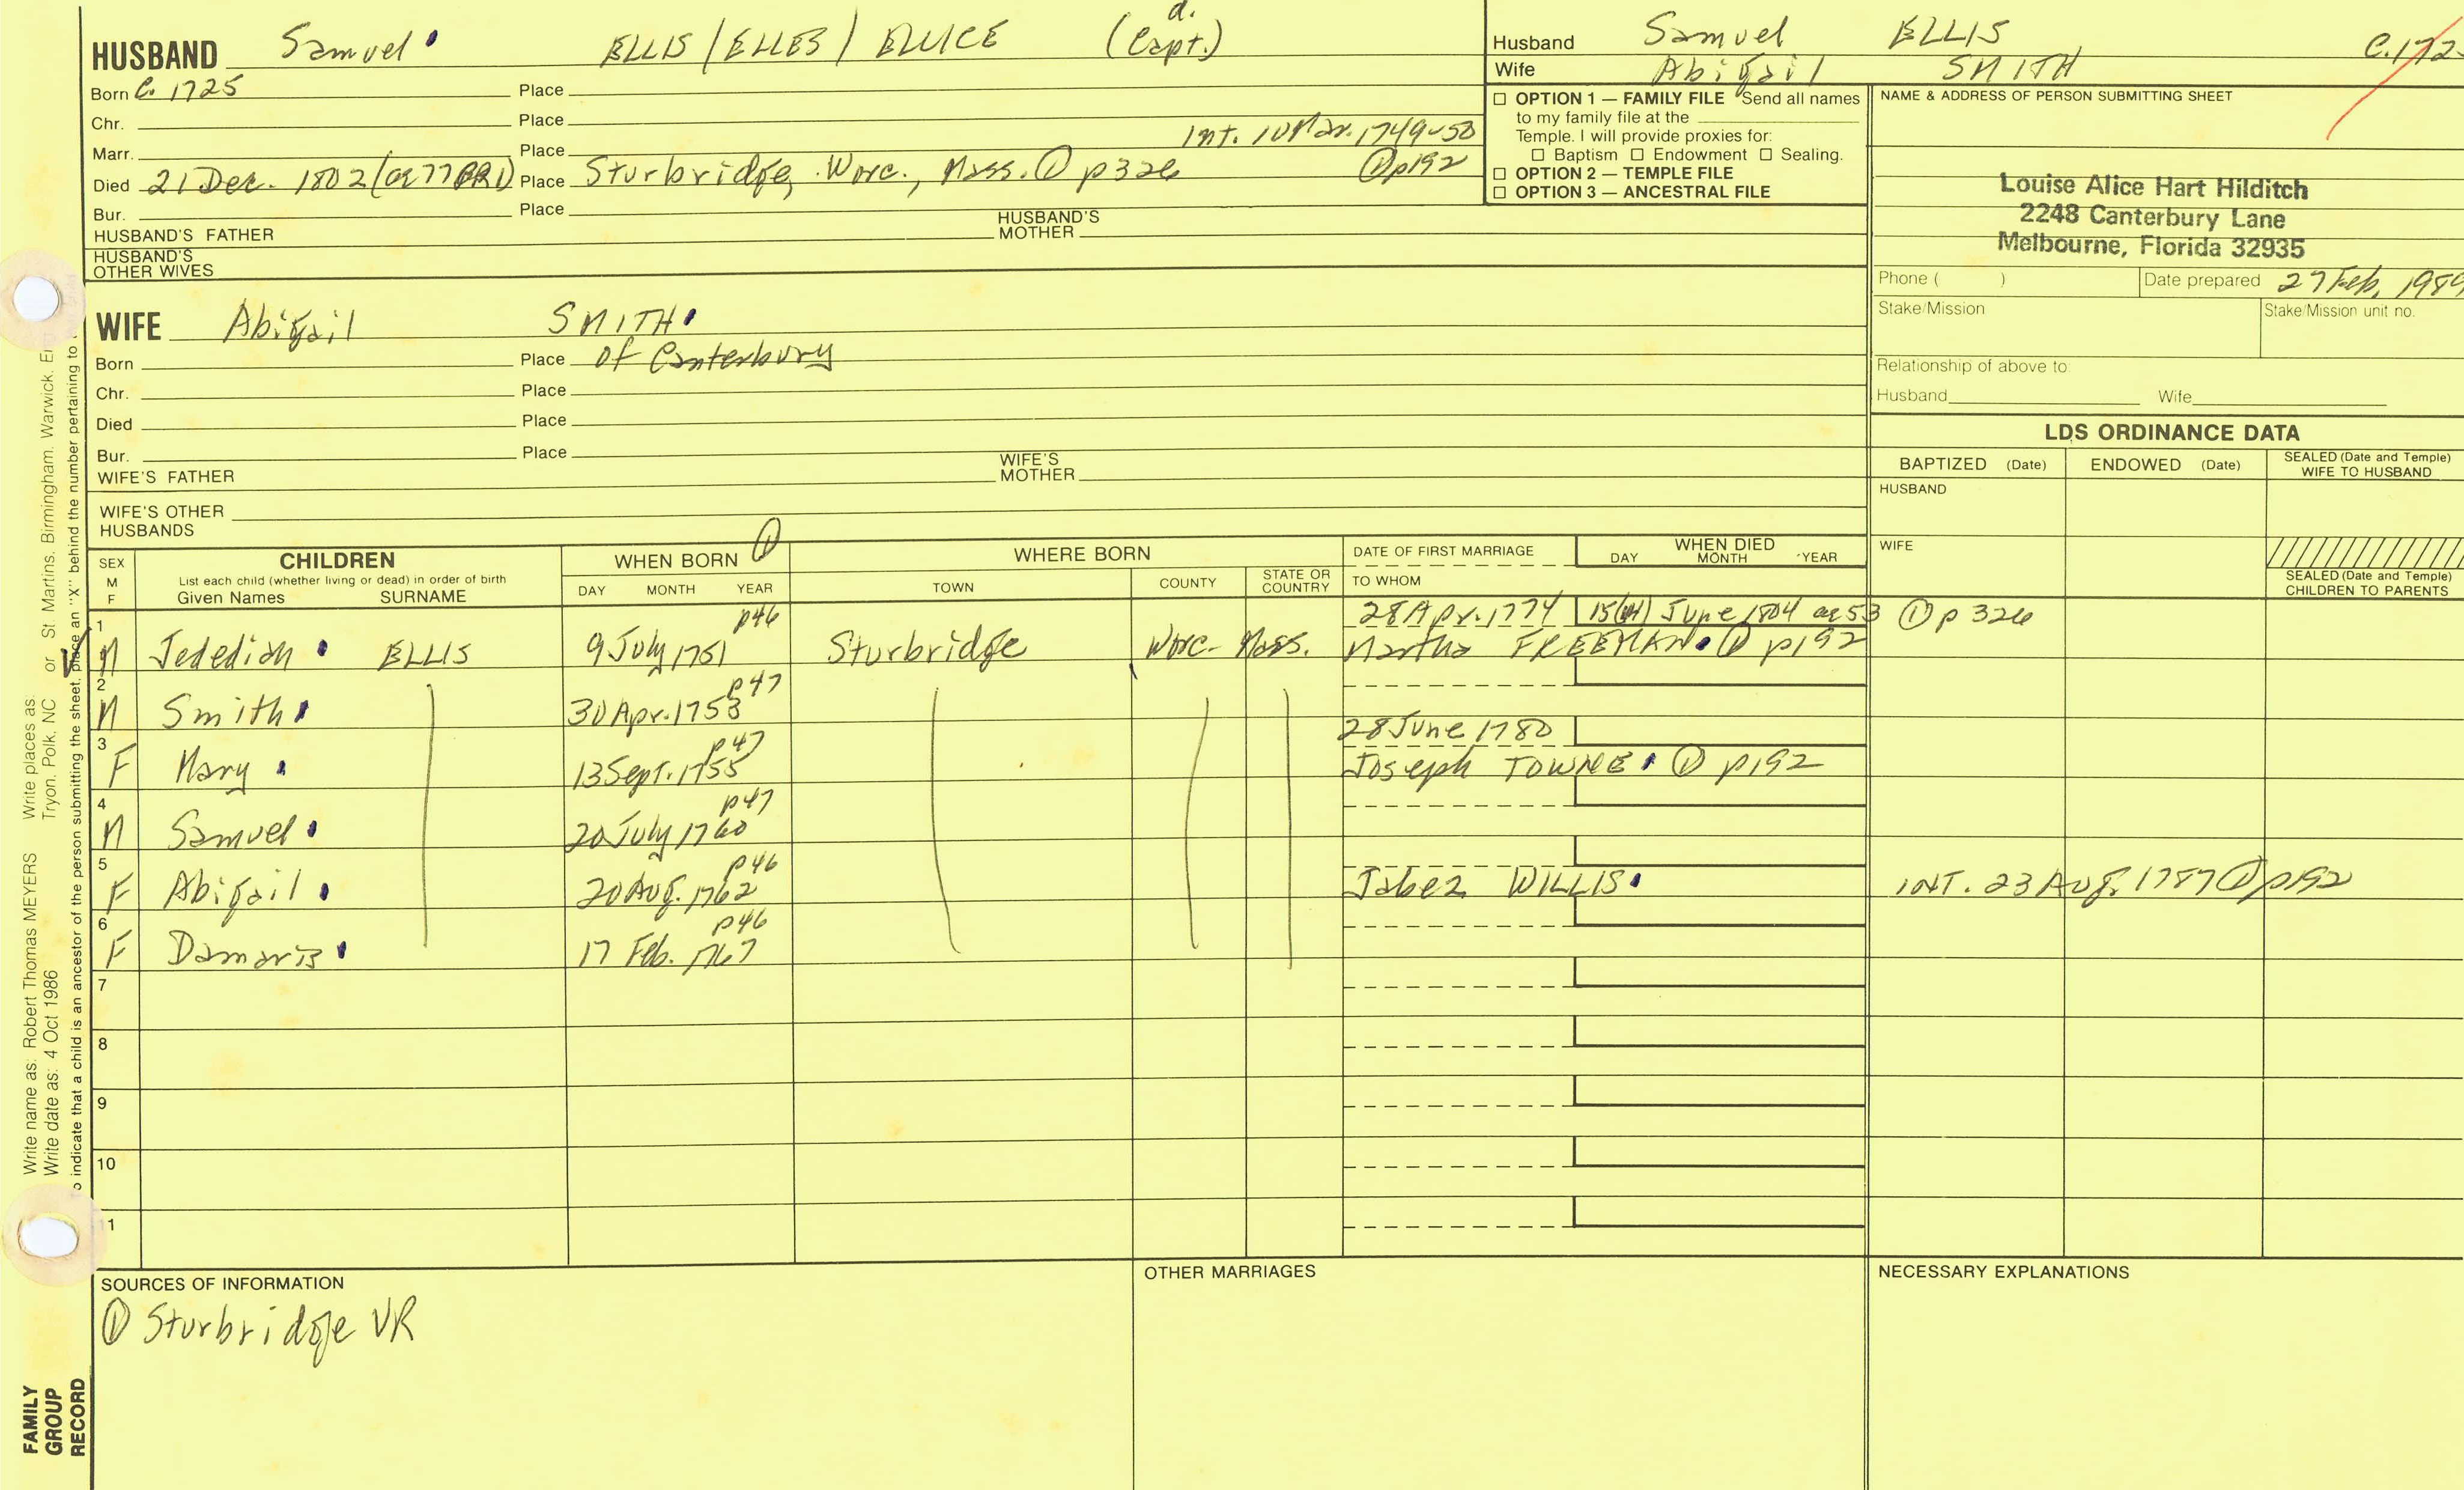 HUSBAND Samuel ELLIS / ELLES / ELLICE (Capt.) d.
Born C. 1725 Place
Chr. Place
Marr. Place Int. 10 Mar. 1749-50
① p192
Died 21 Dec. 1802 (ae 77 GR1) Place Sturbridge, Worc., Mass. ① p326
Bur. Place
HUSBAND'S FATHER HUSBAND'S MOTHER
HUSBAND'S OTHER WIVES
Husband Samuel ELLIS
Wife Abigail SMITH
☐ OPTION 1 — FAMILY FILE Send all names
to my family file at the
Temple. I will provide proxies for:
☐ Baptism ☐ Endowment ☐ Sealing.
☐ OPTION 2 — TEMPLE FILE
☐ OPTION 3 — ANCESTRAL FILE
NAME & ADDRESS OF PERSON SUBMITTING SHEET
Louise Alice Hart Hilditch
2248 Canterbury Lane
Melbourne, Florida 32935
Phone ( ) Date prepared 27 Feb. 1989
Stake/Mission Stake/Mission unit no.
Relationship of above to:
Husband Wife
WIFE Abigail SMITH
Born Place of Canterbury
Chr. Place
Died Place
Bur. Place
WIFE'S FATHER WIFE'S MOTHER
WIFE'S OTHER HUSBANDS
LDS ORDINANCE DATA
BAPTIZED (Date) ENDOWED (Date) SEALED (Date and Temple) WIFE TO HUSBAND
HUSBAND
WIFE
SEALED (Date and Temple) CHILDREN TO PARENTS
SEX M F
CHILDREN
List each child (whether living or dead) in order of birth
Given Names SURNAME
WHEN BORN ①
DAY MONTH YEAR
WHERE BORN
TOWN COUNTY STATE OR COUNTRY
DATE OF FIRST MARRIAGE
TO WHOM
WHEN DIED
DAY MONTH YEAR
p46 28 Apr. 1774 15(14) June 1804 ae 53 ① p 326
1 M Jedediah ELLIS 9 July 1751 Sturbridge Worc- Mass. Martha FREEMAN ① p192
p47
2 M Smith 30 Apr. 1753
p47 28 June 1780
3 F Mary 13 Sept. 1755 Joseph TOWNE ① p192
p47
4 M Samuel 20 July 1760
p46
5 F Abigail 20 Aug. 1762 Jabez WILLIS INT. 23 Aug. 1787 ① p192
p46
6 F Damaris 17 Feb. 1767
7
8
9
10
11
SOURCES OF INFORMATION
① Sturbridge VR
OTHER MARRIAGES
NECESSARY EXPLANATIONS
Write name as: Robert Thomas MEYERS Write places as:
Write date as: 4 Oct 1986 Tryon, Polk, NC or St. Martins, Birmingham, Warwick,
indicate that a child is an ancestor of the person submitting the sheet, place an "X" behind the number pertaining to
FAMILY
GROUP
RECORD